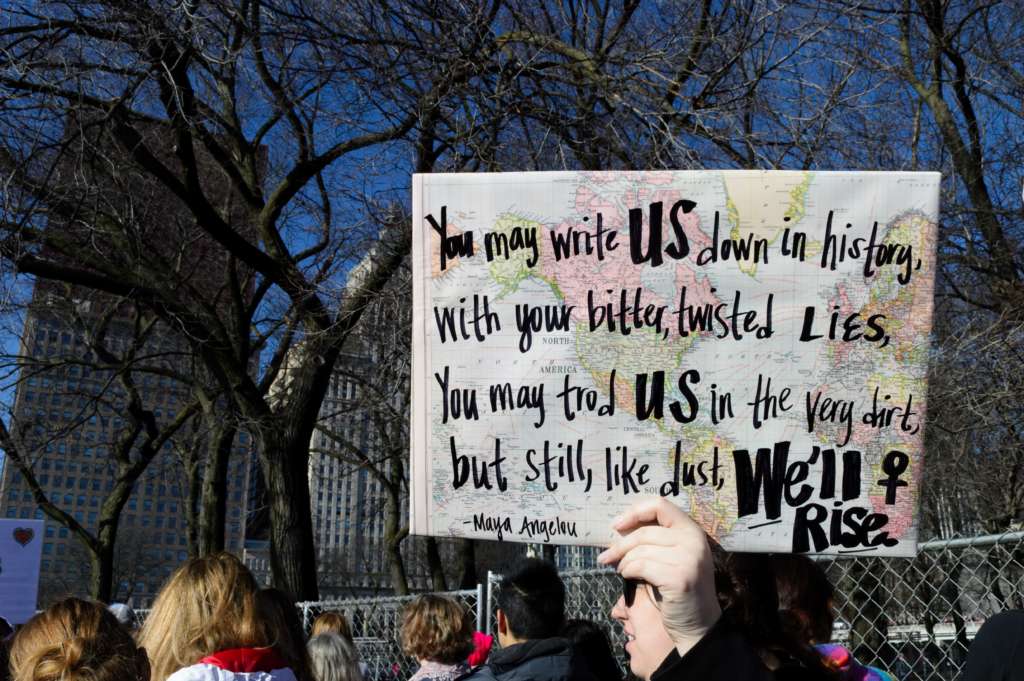 You may write US down in history,
with your bitter, twisted LIES,
You may trod US in the very dirt,
but still, like dust, We'll
Rise.
-Maya Angelou
NORTH
AMERICA